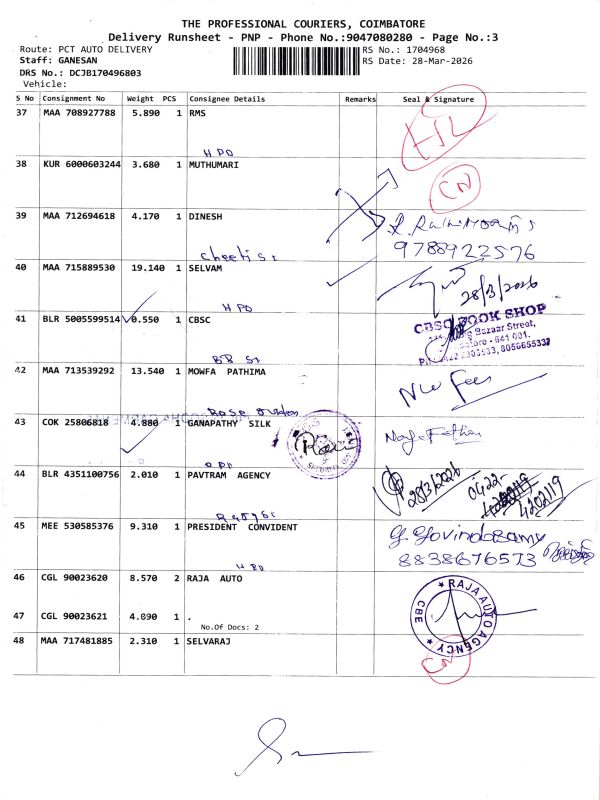 THE PROFESSIONAL COURIERS, COIMBATORE
Delivery Runsheet - PNP - Phone No.:9047080280 - Page No.:3
Route: PCT AUTO DELIVERY
RS No.: 1704968
Staff: GANESAN
RS Date: 28-Mar-2026
DRS No.: DCJB170496803
Vehicle:
S No Consignment No Weight PCS Consignee Details Remarks Seal & Signature
37 MAA 708927788 5.890 1 RMS
HPO
38 KUR 6000603244 3.680 1 MUTHUMARI
CN
39 MAA 712694618 4.170 1 DINESH
9788922576
40 MAA 715889530 19.140 1 SELVAM
28/3/2026
HPO
41 BLR 5005599514 0.550 1 CBSC
CBSC BOOK SHOP
Bazaar Street,
641 001.
8056655337
BB St
42 MAA 713539292 13.540 1 MOWFA PATHIMA
Rose
43 COK 25806818 4.880 1 GANAPATHY SILK
44 BLR 4351100756 2.010 1 PAVTRAM AGENCY
28/3/2026
0422-
4202119
45 MEE 530585376 9.310 1 PRESIDENT CONVIDENT
G. Govindasamy
8838676573
HPO
46 CGL 90023620 8.570 2 RAJA AUTO
RAJA AUTO AGENCY
CBE
47 CGL 90023621 4.090 1 .
No.Of Docs: 2
48 MAA 717481885 2.310 1 SELVARAJ
CN